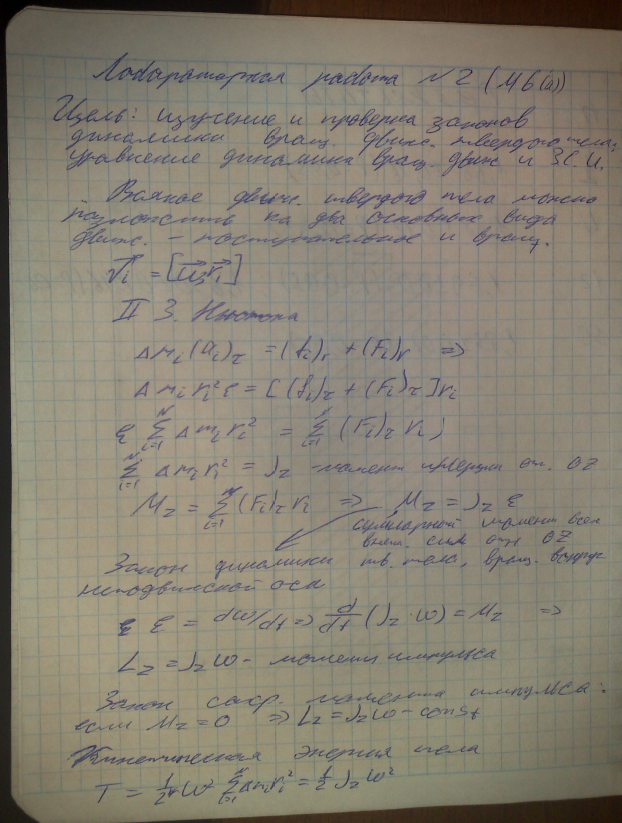 Лабораторная работа №2 (М6(а))
Цель: изучение и проверка законов
динамики вращ. движ. твердого тела;
уравнение динамики вращ. движ и З.С.И.
Всякое движ. твердого тела можно
разложить на два основных вида
движ. – поступательное и вращ.
V⃗i = [ω⃗ r⃗i]
II З. Ньютона
Δmi(ai)τ = (fi)τ + (Fi)τ ⇒
Δmi ri² ε = [(fi)τ + (Fi)τ] ri
ε Σ(i=1..N) Δmi ri² = Σ(i=1..N) (Fi)τ ri;
Σ(i=1..N) Δmi ri² = Jz - момент инерции от. OZ
Mz = Σ(i=1..N) (Fi)τ ri ⇒ Mz = Jz ε
суммарный момент всех
внеш. сил отн OZ
Закон динамики тв. тела, вращ. вокруг
неподвижной оси
ε = dω/dt ⇒ d/dt (Jz · ω) = Mz ⇒
Lz = Jz ω - момент импульса
Закон сохр. момента импульса:
если Mz = 0 ⇒ Lz = Jz ω – const
Кинетическая энергия тела
T = 1/2 ω² Σ(i=1..N) Δmi ri² = 1/2 Jz ω²